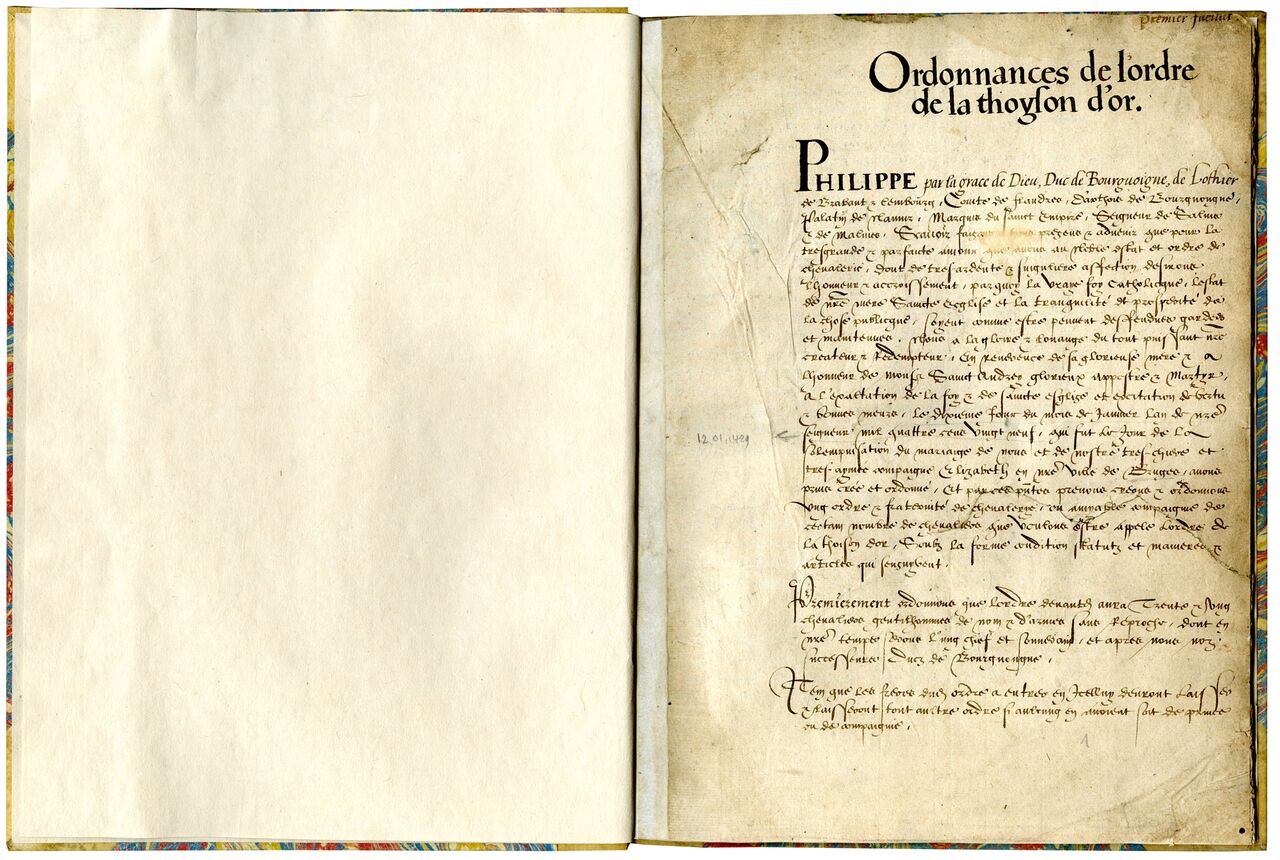 premier
Ordonnances de lordre
de la thoyson d'or.
PHILIPPE par la grace de Dieu, Duc de Bourguoigne, de Lothier
de Brabant & Lembourg, Comte de flandres, dArthois de Bourgnougne,
Palatin de Namur, Marquis du sainct Empire, Seigneur de Salins
& de Malines, Scavoir faisons a tous presens & advenir que pour la
tresgrande & parfaicte amour que avons au Noble estat et ordre de
chevalerie, dont de tresardente & singuliere affection desirons
lhonneur & accroissement, par quoy la vraye foy Catholicque, Lestat
de nre mere Saincte Eglise et la tranquilité et prosperité de
la chose publicque, soyent comme estre peuvent deffendues gardees
et maintenues. Nous a la gloire & louange du tout puissant nre
createur & Redempteur, En reverence de sa glorieuse mere & a
lhonneur de monsr Sainct Andrey glorieux appostre & Martyr,
a l'exaltation de la foy & de saincte esglise et excitation de vertu
& bonnes meurs, le dixieme jour du mois de Janvier lan de nre
12.01.1429
seigneur mil quattre cens vingt neuf, qui fut le Jour de la
solempnisation du mariaige de nous et de nostre treschiere et
tresaymee compaigne Elizabeth en nre ville de Bruges, avons
prins cree et ordonné, Et par ces pntes prenons creons & ordonnons
ung ordre & fraternité de chevalerye, ou amyable compaigne de
certain nombre de chevaliers que voulons estre appele Lordre de
la thoison dor, Soubz la forme condition statutz et manieres &
articles qui sensuyvent.
Premierement ordonnons que lordre devantd aura Trente & Ung
chevaliers gentilhommes de nom & d'armes sans Reproche, dont en
nre temps serons l'ung chief et souverain, et apres nous noz
successeurs Ducz de Bourgongne.
Item que les freres dud ordre a entree en Icelluy devront Laisser
& laisseront tout aultre ordre si aulcung en avoient soit de prince
ou de compaignie.
1